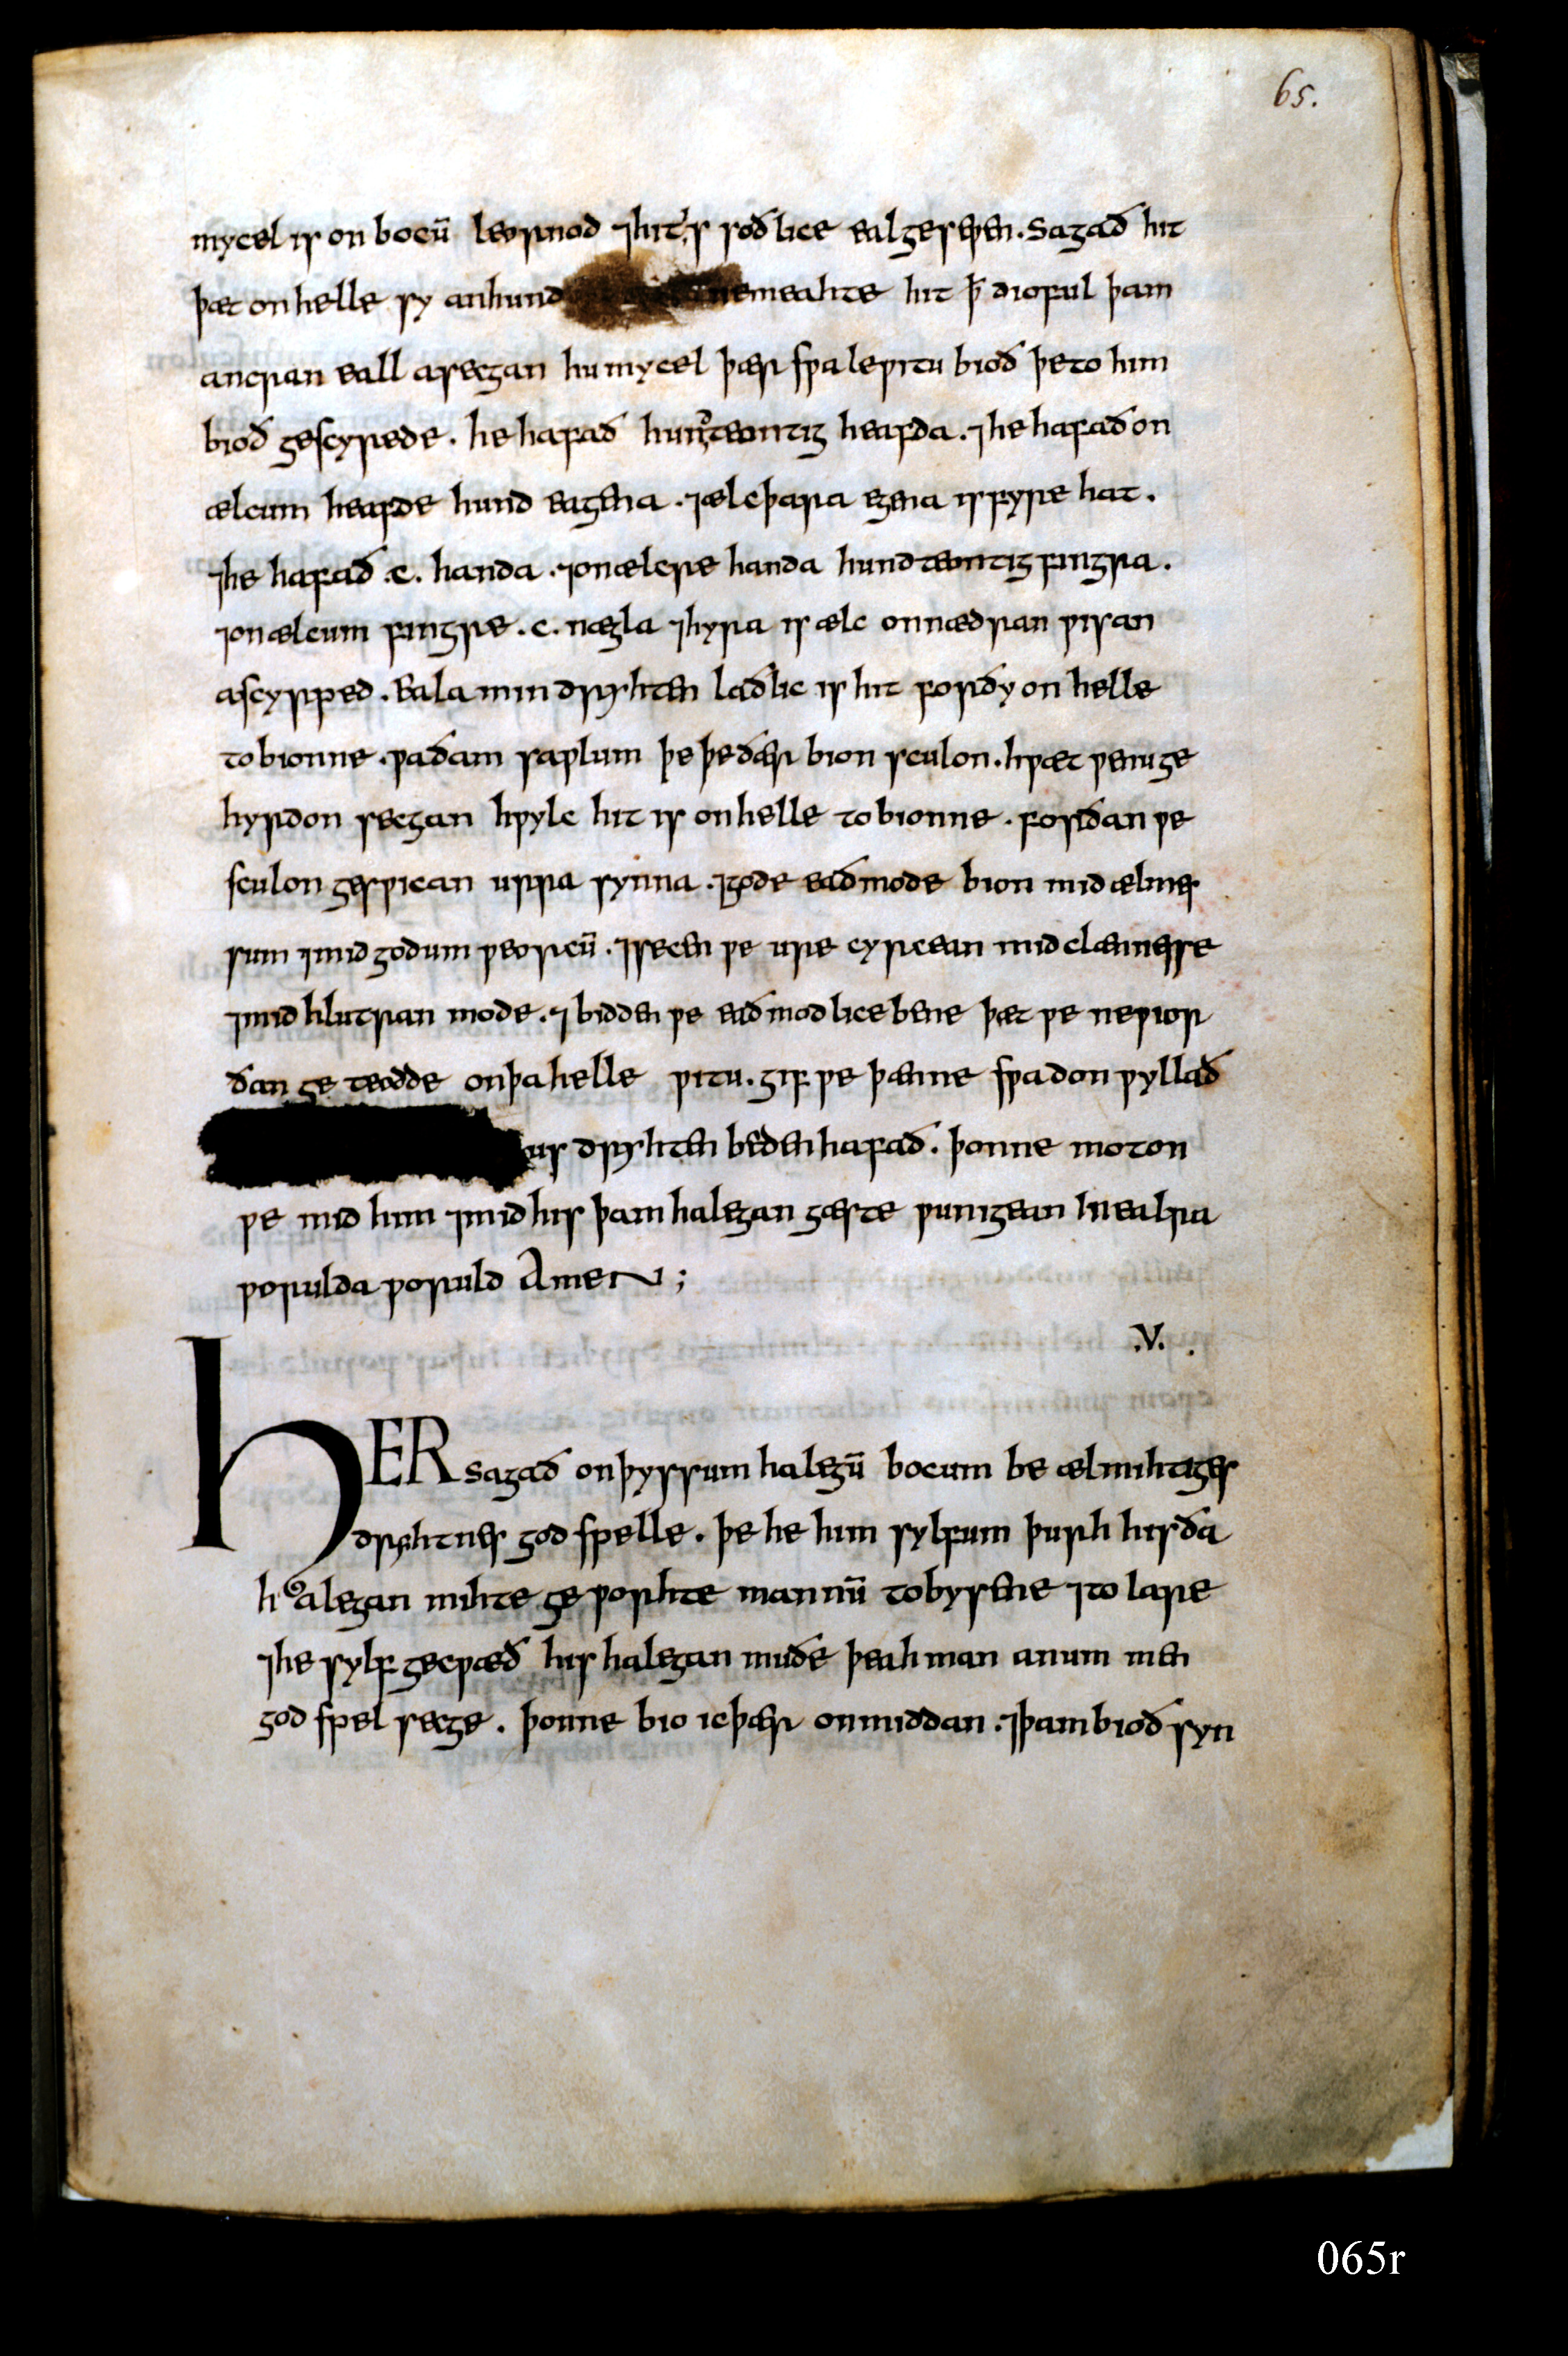 65.
mycel is on bocū leornod ⁊ hit is soðlice eal gesewen. Sagað hit
þæt on helle sy an hund ne meahte hit þ̄ dioful þam
ancran eall asecgan hu mycel þær sƿa leƿitu bioð þe to him
bioð gescyrede. he hafað hundteontig heafda. ⁊ he hafað on
ælcum heafde hund eagena. ⁊ ælc þara egena is fyre hat.
⁊ he hafað .c. handa. ⁊ on ælcre handa hundteontig fingra.
⁊ on ælcum fingre .c. nægla ⁊ hyra is ælc on nædran ƿisan
ascyrped. Eala min dryhten laðlic is hit forðy on helle
to bionne. ƿa ðam saƿlum þe þe ðær bion sculon. hƿæt ƿe nu ge
hyrdon secgan hƿylc hit is on helle to bionne. forðan ƿe
sculon gesƿican urra synna. ⁊ gode eaðmode bion mid ælmes
sum ⁊ mid godum ƿeorcū. ⁊ secen ƿe ure cyrcean mid clænnesse
⁊ mid hlutran mode. ⁊ bidden ƿe eaðmodlice bene þæt ƿe ne ƿior
ðan ge teodde on þa helle ƿitu. gif ƿe þænne sƿa don ƿyllað
us dryhten beden hafað. þonne moton
ƿe mid him ⁊ mid his þam halegan gæste ƿunigean in ealra
ƿorulda ƿoruld Amen;
.V.
HER sagað on þyssum halegū bocum be ælmihtiges
dryhtnes godspelle. þe he him sylfum þurh his ða
halegan mihte geƿorhte mannū to bysene ⁊ to lare
⁊ he sylf gecƿæð his halegan muðe þeah man anum men
godspel secge. þonne bio ic þær on middan. ⁊ þam bioð syn
065r